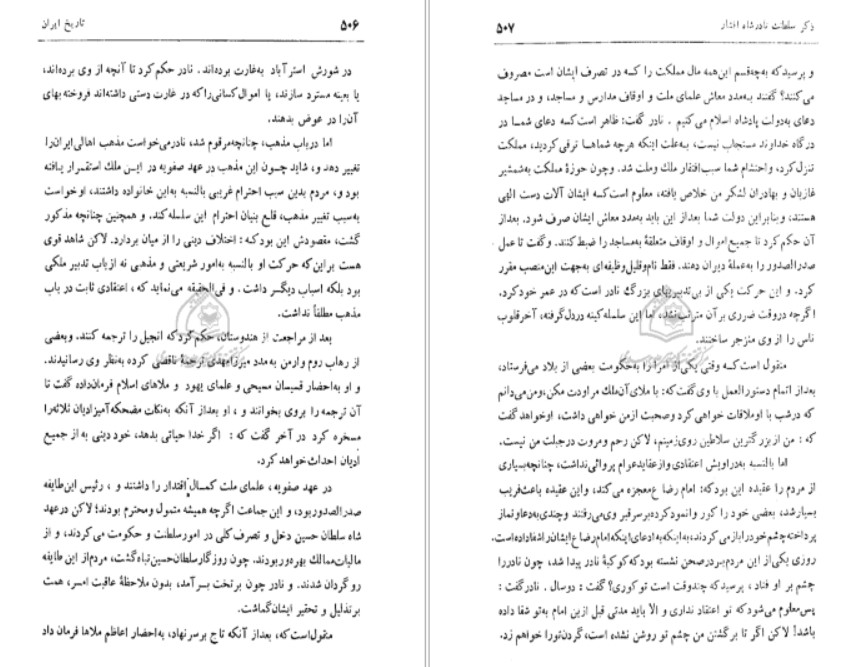 ۵۰۶
تاریخ ایران
در شورش استرآباد به‌غارت برده‌اند. نادر حکم‌کرد تا آنچه از وی برده‌اند،
یا بعینه مسترد سازند، یا اموال‌کسانی‌راکه در غارت دستی داشته‌اند فروخته بهای
آن‌را در عوض بدهند.
اما درباب مذهب، چنانچه‌مرقوم شد، نادرمی‌خواست مذهب اهالی‌ایران‌را
تغییر دهد و، شاید چسون این مذهب در عهد صفویه در ایسن ملك استقسرار یافته
بود و، مردم بدین سبب احترام غریبی بالنسبه به‌این خانواده داشتند، اوخواست
به‌سبب تغییر مذهب، قلع بنیان احترام این سلسله‌کند. و همچنین چنانچه مذکور
گشت، مقصودش این بودکه: اختلاف دینی را از میان بردارد. لاکن شاهد قوی
هست براین‌که حرکت او بالنسبه به‌امور شریعتی و مذهبی نه ازباب تدبیر ملکی
بود بلکه اسباب دیگسر داشت. و فی‌الحقیقه می‌نماید که، اعتقادی ثابت در باب
مذهب مطلقاً نداشت.
بعد از مراجعت از هندوستان، حکم‌کردکه انجیل را ترجمه کنند. وبعضی
از رهاب روم وارمن به‌مدد میرزامهدی ترجمهٔ ناقصی کرده به‌نظر وی رسانیدند.
و او به‌احضار قسیسان مسیحی و علمای یهود و ملاهای اسلام فرمان‌داده گفت تا
آن ترجمه را بروی بخوانند و، او بعداز آنکه به‌نکات مضحکه‌آمیزادیان ثلاثه‌را
مسخره کرد در آخر گفت که: اگر خدا حیاتی بدهد، خود دینی به از جمیع
ادیان احداث‌خواهد کرد.
در عهد صفویه، علمای ملت کمسال اقتدار را داشتند و، رئیس این‌طایفه
صدرالصدوربود، و این‌جماعت اگرچه همیشه متمول ومحترم بودند؛ لاکن درعهد
شاه سلطان حسین دخل و تصرف‌کلی در امورسلطنت و حکومت می‌کردند، و از
مالیات‌ممالك بهره‌وربودند. چون روزگارسلطان‌حسین‌تباه‌گشت، مردم‌از این‌طایفه
روگردان شدند. و نادر چون برتخت بسرآمد، بدون ملاحظهٔ عاقبت امسر، همت
برتذلیل و تحقیر ایشان‌گماشت.
منقول‌است‌که، بعداز آنکه تاج برسرنهاد، به‌احضار اعاظم ملاها فرمان داد
ذکر سلطنت نادرشاه افشار
۵۰۷
و پرسیدکه به‌چه‌قسم این‌همه مال مملکت را کسه در تصرف ایشان است مصروف
می‌کنند؟ گفتند به‌مدد معاش علمای ملت و اوقاف مدارس و مساجد، و در مساجد
دعای به‌دولت پادشاه اسلام می‌کنیم. نادر گفت: ظاهر است‌کسه دعای شمسا در
درگاه خداوند مستجاب نیست، بسه‌علت اینکه هرچه شماهسا ترقی‌کردید، مملکت
تنزل‌کرد، واحتشام شما سبب‌افتقار ملك وملت شد. وچون حوزهٔ مملکت به‌شمشیر
غازیان و بهادران لشکر من خلاص یافته، معلوم است‌کسه ایشان آلات دست الهی
هستند، وبنابراین دولت شما بعداز این باید به‌مدد معاش ایشان صرف شود. بعداز
آن حکم‌کرد تا جمیع اموال و اوقاف متعلقهٔ به‌مساجد را ضبط‌کنند. وگفت تا عمل
صدرالصدور را به‌عملهٔ دیوان دهند. فقط نام‌وقلیل‌وظیفه‌ای به‌جهت این‌منصب مقرر
کرد. و این حرکت یکی از بی‌تدبیریهای بزرگ نادر است‌که در عمر خودکرد.
اگرچه دروقت ضرری برآن مترتب‌نشد، اما این سلسله‌کینه دردل‌گرفته، آخرقلوب
ناس را از وی منزجر ساختند.
منقول است‌کسه وقتی یکی‌از امرا را به‌حکومت بعضی از بلاد می‌فرستاد،
بعداز اتمام دستورالعمل با وی‌گفت‌که: با ملای‌آن‌ملك مراودت مکن، ومن‌می‌دانم
که درشب با اوملاقات خواهی‌کرد وصحبت ازمن خواهی داشت، اوخواهدگفت
که: من از بزرگترین سلاطین روی‌زمینم، لاکن رحم ومروت درجبلت من نیست.
اما بالنسبه به‌دراویش اعتقادی وازعقایدعوام پروائی‌نداشت، چنانچه‌بسیاری
از مردم را عقیده این بودکه: امام رضا ع‌معجزه می‌کند، واین عقیده باعث‌فریب
بسیارشد، بعضی خود را کور وانمودکرده‌برسرقبر وی‌می‌رفتند وچندی‌به‌دعاونماز
پرداخته چشم‌خودرابازمی‌کردند، به‌اینکه‌به‌ادعای‌اینکه‌امام‌رضا ع‌ایشان‌راشفاداده‌است.
روزی یکی‌از این مردم‌بردرصحن نشسته بودکه‌کوکبهٔ نادر پیدا شد، چون نادررا
چشم بر او فتاد، پرسیدکه چندوقت است توکوری؟ گفت: دوسال. نادرگفت:
پس‌معلوم می‌شودکه تو اعتقاد نداری و الا باید مدتی قبل ازین امام به‌تو شفا داده
باشد! لاکن اگر تا برگشتن من چشم تو روشن نشده است، گردن‌تورا خواهم زد.